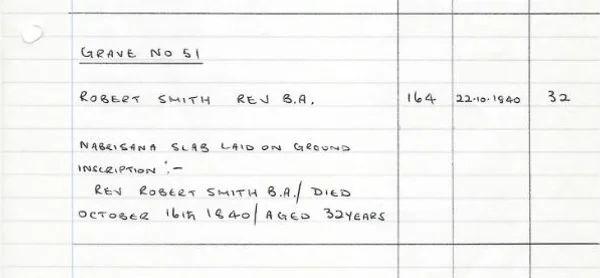 GRAVE NO 51
ROBERT SMITH REV B.A. 164 22.10.1840 32
NABRISANA SLAB LAID ON GROUND
INSCRIPTION :-
REV ROBERT SMITH B.A./ DIED
OCTOBER 16th 1840/ AGED 32 YEARS